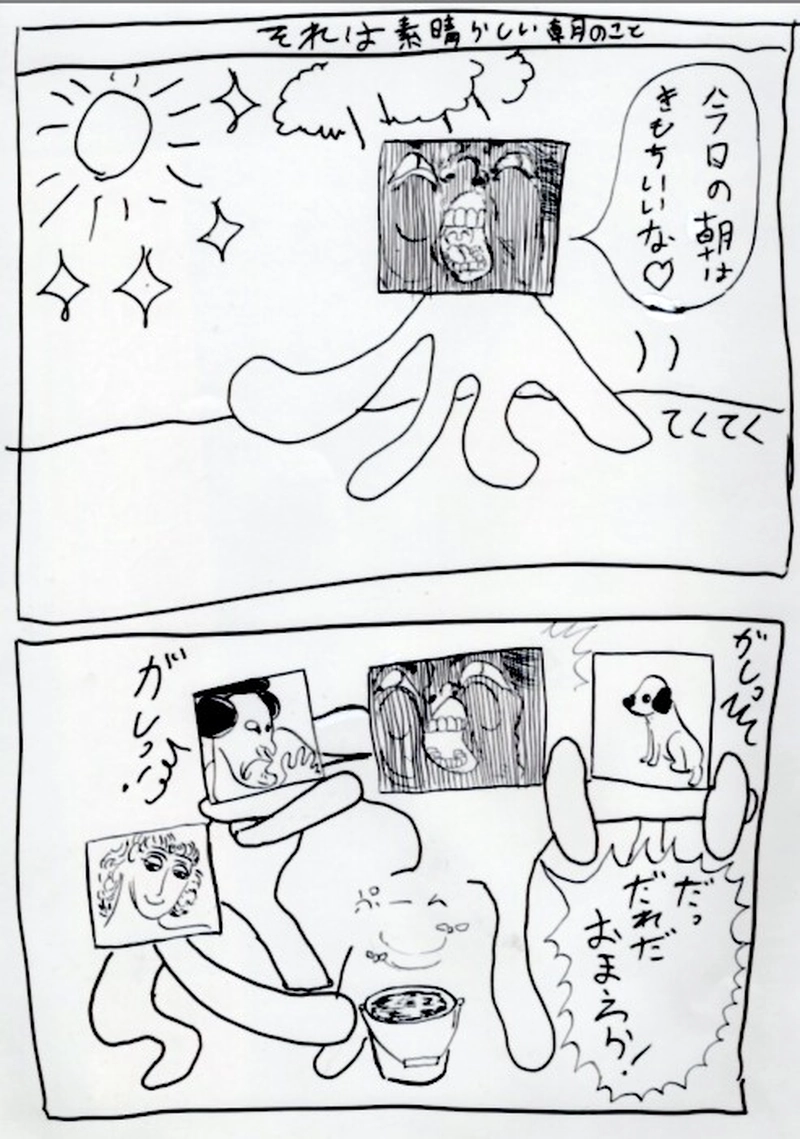 それは素晴らしい朝のこと
今日の朝は
きもちいいな♡
てくてく
がしっ
がしっ
だっ
だれだ
おまえら!
ぷ〜ん